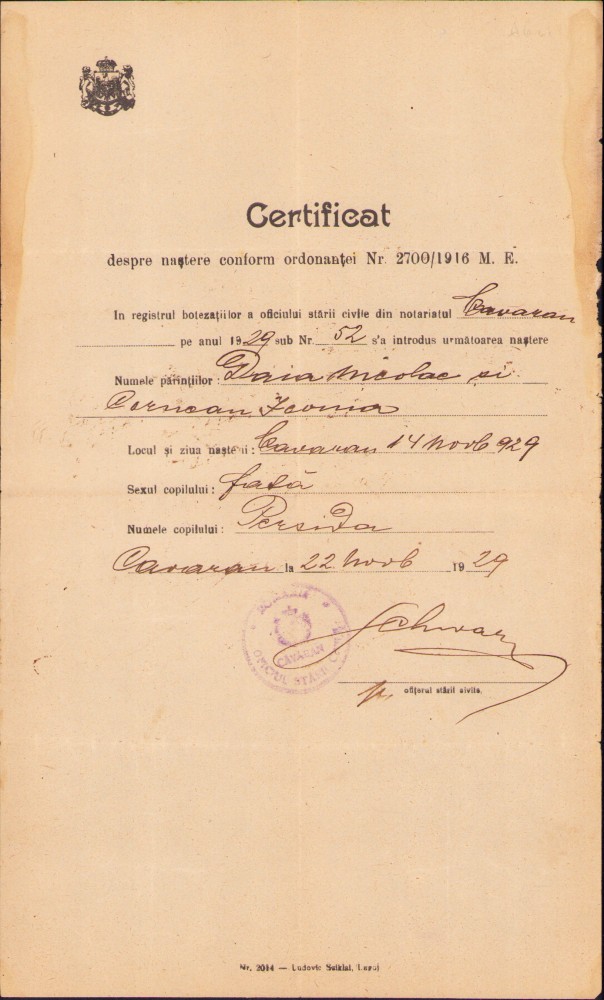 Certificat
despre naștere conform ordonanței Nr. 2700/1916 M. E.
In registrul botezaților a oficiului stării civile din notariatul Cavaran
pe anul 1929 sub Nr. 52 s'a introdus următoarea naștere
Numele părinților: Nicolae și
Cornean Iconia
Locul și ziua nașterii: Cavaran 14 Novb 929
Sexul copilului: fată
Numele copilului: Persida
Cavaran la 22 Novb 1929
ROMÂNIA
CĂVĂRAN
OFICIUL STĂRII
Schwarz
p. ofițerul stării civile.
Nr. 2014 — Ludovic Lugoj